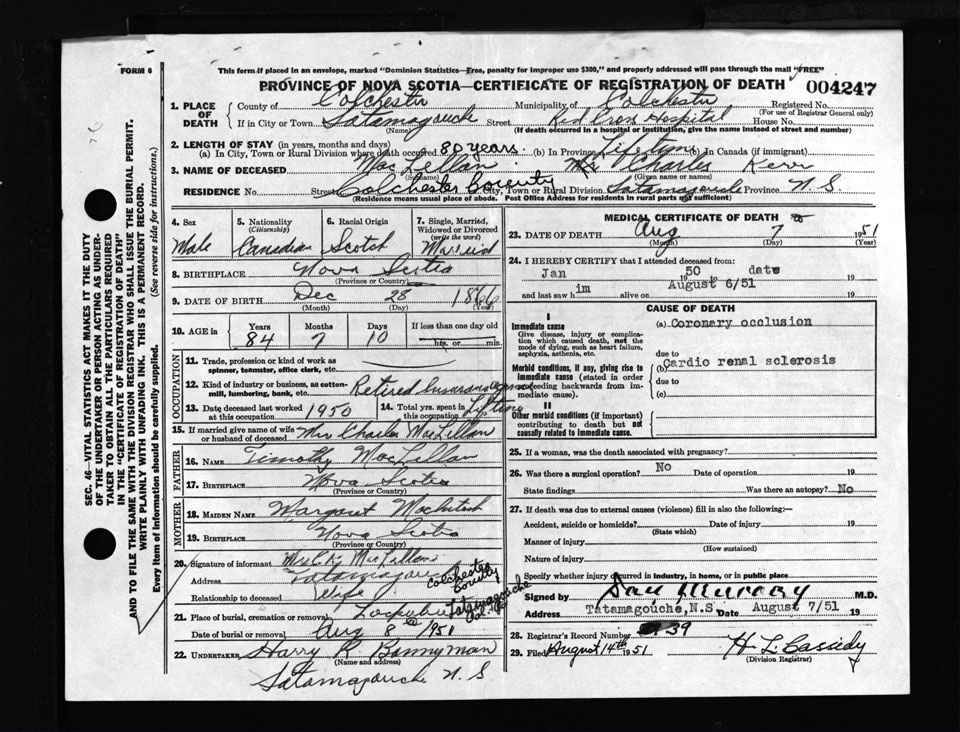 FORM 6
This form if placed in an envelope, marked "Dominion Statistics—Free, penalty for improper use $300," and properly addressed will pass through the mail "FREE"
PROVINCE OF NOVA SCOTIA—CERTIFICATE OF REGISTRATION OF DEATH 004247
1. PLACE OF DEATH County of Colchester Municipality of Colchester Registered No.
(For use of Registrar General only)
If in City or Town Tatamagouche Street Red Cross Hospital House No.
(Name) (If death occurred in a hospital or institution, give the name instead of street and number)
2. LENGTH OF STAY (in years, months and days)
(a) In City, Town or Rural Division where death occurred 80 years. (b) In Province Lifetime (c) In Canada (if immigrant)
3. NAME OF DECEASED MacLellan Charles Kerr
(Surname) (Given name or names)
RESIDENCE No. Street Colchester County City, Town or Rural Division Tatamagouche Province N.S.
(Residence means usual place of abode. Post Office Address for residents in rural parts not sufficient)
SEC. 46—VITAL STATISTICS ACT MAKES IT THE DUTY
OF THE UNDERTAKER OR PERSON ACTING AS UNDER-
TAKER TO OBTAIN ALL THE PARTICULARS REQUIRED
IN THE "CERTIFICATE OF REGISTRATION OF DEATH"
AND TO FILE THE SAME WITH THE DIVISION REGISTRAR WHO SHALL ISSUE THE BURIAL PERMIT.
WRITE PLAINLY WITH UNFADING INK. THIS IS A PERMANENT RECORD.
Every item of information should be carefully supplied. (See reverse side for instructions.)
4. Sex 5. Nationality 6. Racial Origin 7. Single, Married,
(Citizenship) Widowed or Divorced
(write the word)
Male Canadian Scotch Married
8. BIRTHPLACE Nova Scotia
(Province or Country)
9. DATE OF BIRTH Dec 28 1866
(Month) (Day) (Year)
10. AGE in Years Months Days If less than one day old
84 7 10 hrs. or min.
OCCUPATION
11. Trade, profession or kind of work as
spinner, teamster, office clerk, etc.
12. Kind of industry or business, as cotton-
mill, lumbering, bank, etc. Retired Insurance
13. Date deceased last worked at this occupation 1950 14. Total yrs. spent in this occupation Lifetime
15. If married give name of wife
or husband of deceased Mrs Charles MacLellan
FATHER
16. NAME Timothy MacLellan
17. BIRTHPLACE Nova Scotia
(Province or Country)
MOTHER
18. MAIDEN NAME Margaret
19. BIRTHPLACE Nova Scotia
(Province or Country)
20. Signature of informant Mrs C.K. MacLellan
Address Tatamagouche Colchester County
Relationship to deceased Wife
21. Place of burial, cremation or removal Tatamagouche
Date of burial or removal Aug 8 1951
22. UNDERTAKER Harry R Bonnyman
(Name and address)
Tatamagouche N.S.
MEDICAL CERTIFICATE OF DEATH
23. DATE OF DEATH Aug 7 1951
(Month) (Day) (Year)
24. I HEREBY CERTIFY that I attended deceased from:
Jan 50 date 19
and last saw him alive on August 6/51 19
CAUSE OF DEATH
I
Immediate cause (a) Coronary occlusion
Give disease, injury or complica-
tion which caused death, not the
mode of dying, such as heart failure,
asphyxia, asthenia, etc. due to
Morbid conditions, if any, giving rise to (b) Cardio renal sclerosis
immediate cause (stated in order due to
of proceeding backwards from im-
mediate cause). (c)
II
Other morbid conditions (if important)
contributing to death but not
causally related to immediate cause.
25. If a woman, was the death associated with pregnancy?
26. Was there a surgical operation? No Date of operation 19
State findings Was there an autopsy? No
27. If death was due to external causes (violence) fill in also the following:—
Accident, suicide or homicide? Date of injury 19
(State which)
Manner of injury
(How sustained)
Nature of injury
Specify whether injury occurred in industry, in home, or in public place
Signed by Dan Murray M.D.
Address Tatamagouche, N.S. Date August 7/51 19
28. Registrar's Record Number 39
29. Filed August 14th 1951 H L Cassidy
(Division Registrar)